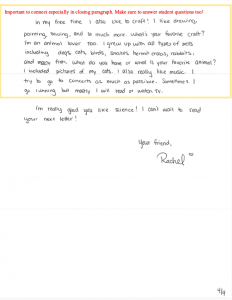 Important to connect especially in closing paragraph. Make sure to answer student questions too!
In my free time I also like to craft! I like drawing,
painting, sewing, and so much more. What's your favorite craft?
I'm an animal lover too. I grew up with all types of pets
including dogs, cats, birds, snakes, hermit crabs, rabbits,
and many fish. What do you have or what is your favorite animal?
I included pictures of my cats. I also really like music. I
try to go to concerts as much as possible. Sometimes I
go running but mostly I will read or watch TV.
I'm really glad you like science! I can't wait to read
your next letter!
Your friend,
Rachel
4/4